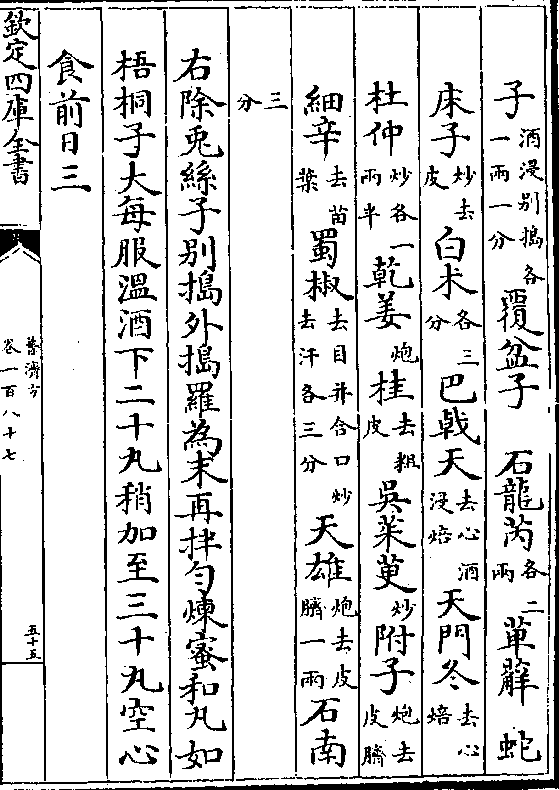 子酒浸別搗各一兩一分覆盆子石龍芮各二兩萆薢蛇
床子炒去皮白朮各三分巴戟天去心酒浸焙天門冬去心焙
杜仲炒各一兩半乾姜炮桂去粗皮吳茱萸炒附子炮去皮臍
細辛去苗葉蜀椒去目并合口炒去汗各三分天雄炮去皮臍一兩石南
三分
右除兎絲子別搗外搗羅為末再拌勻煉蜜和丸如
梧桐子大每服溫酒下二十丸稍加至三十丸空心
食前日三
欽定四庫全書
普濟方
卷一百八十七
五十五